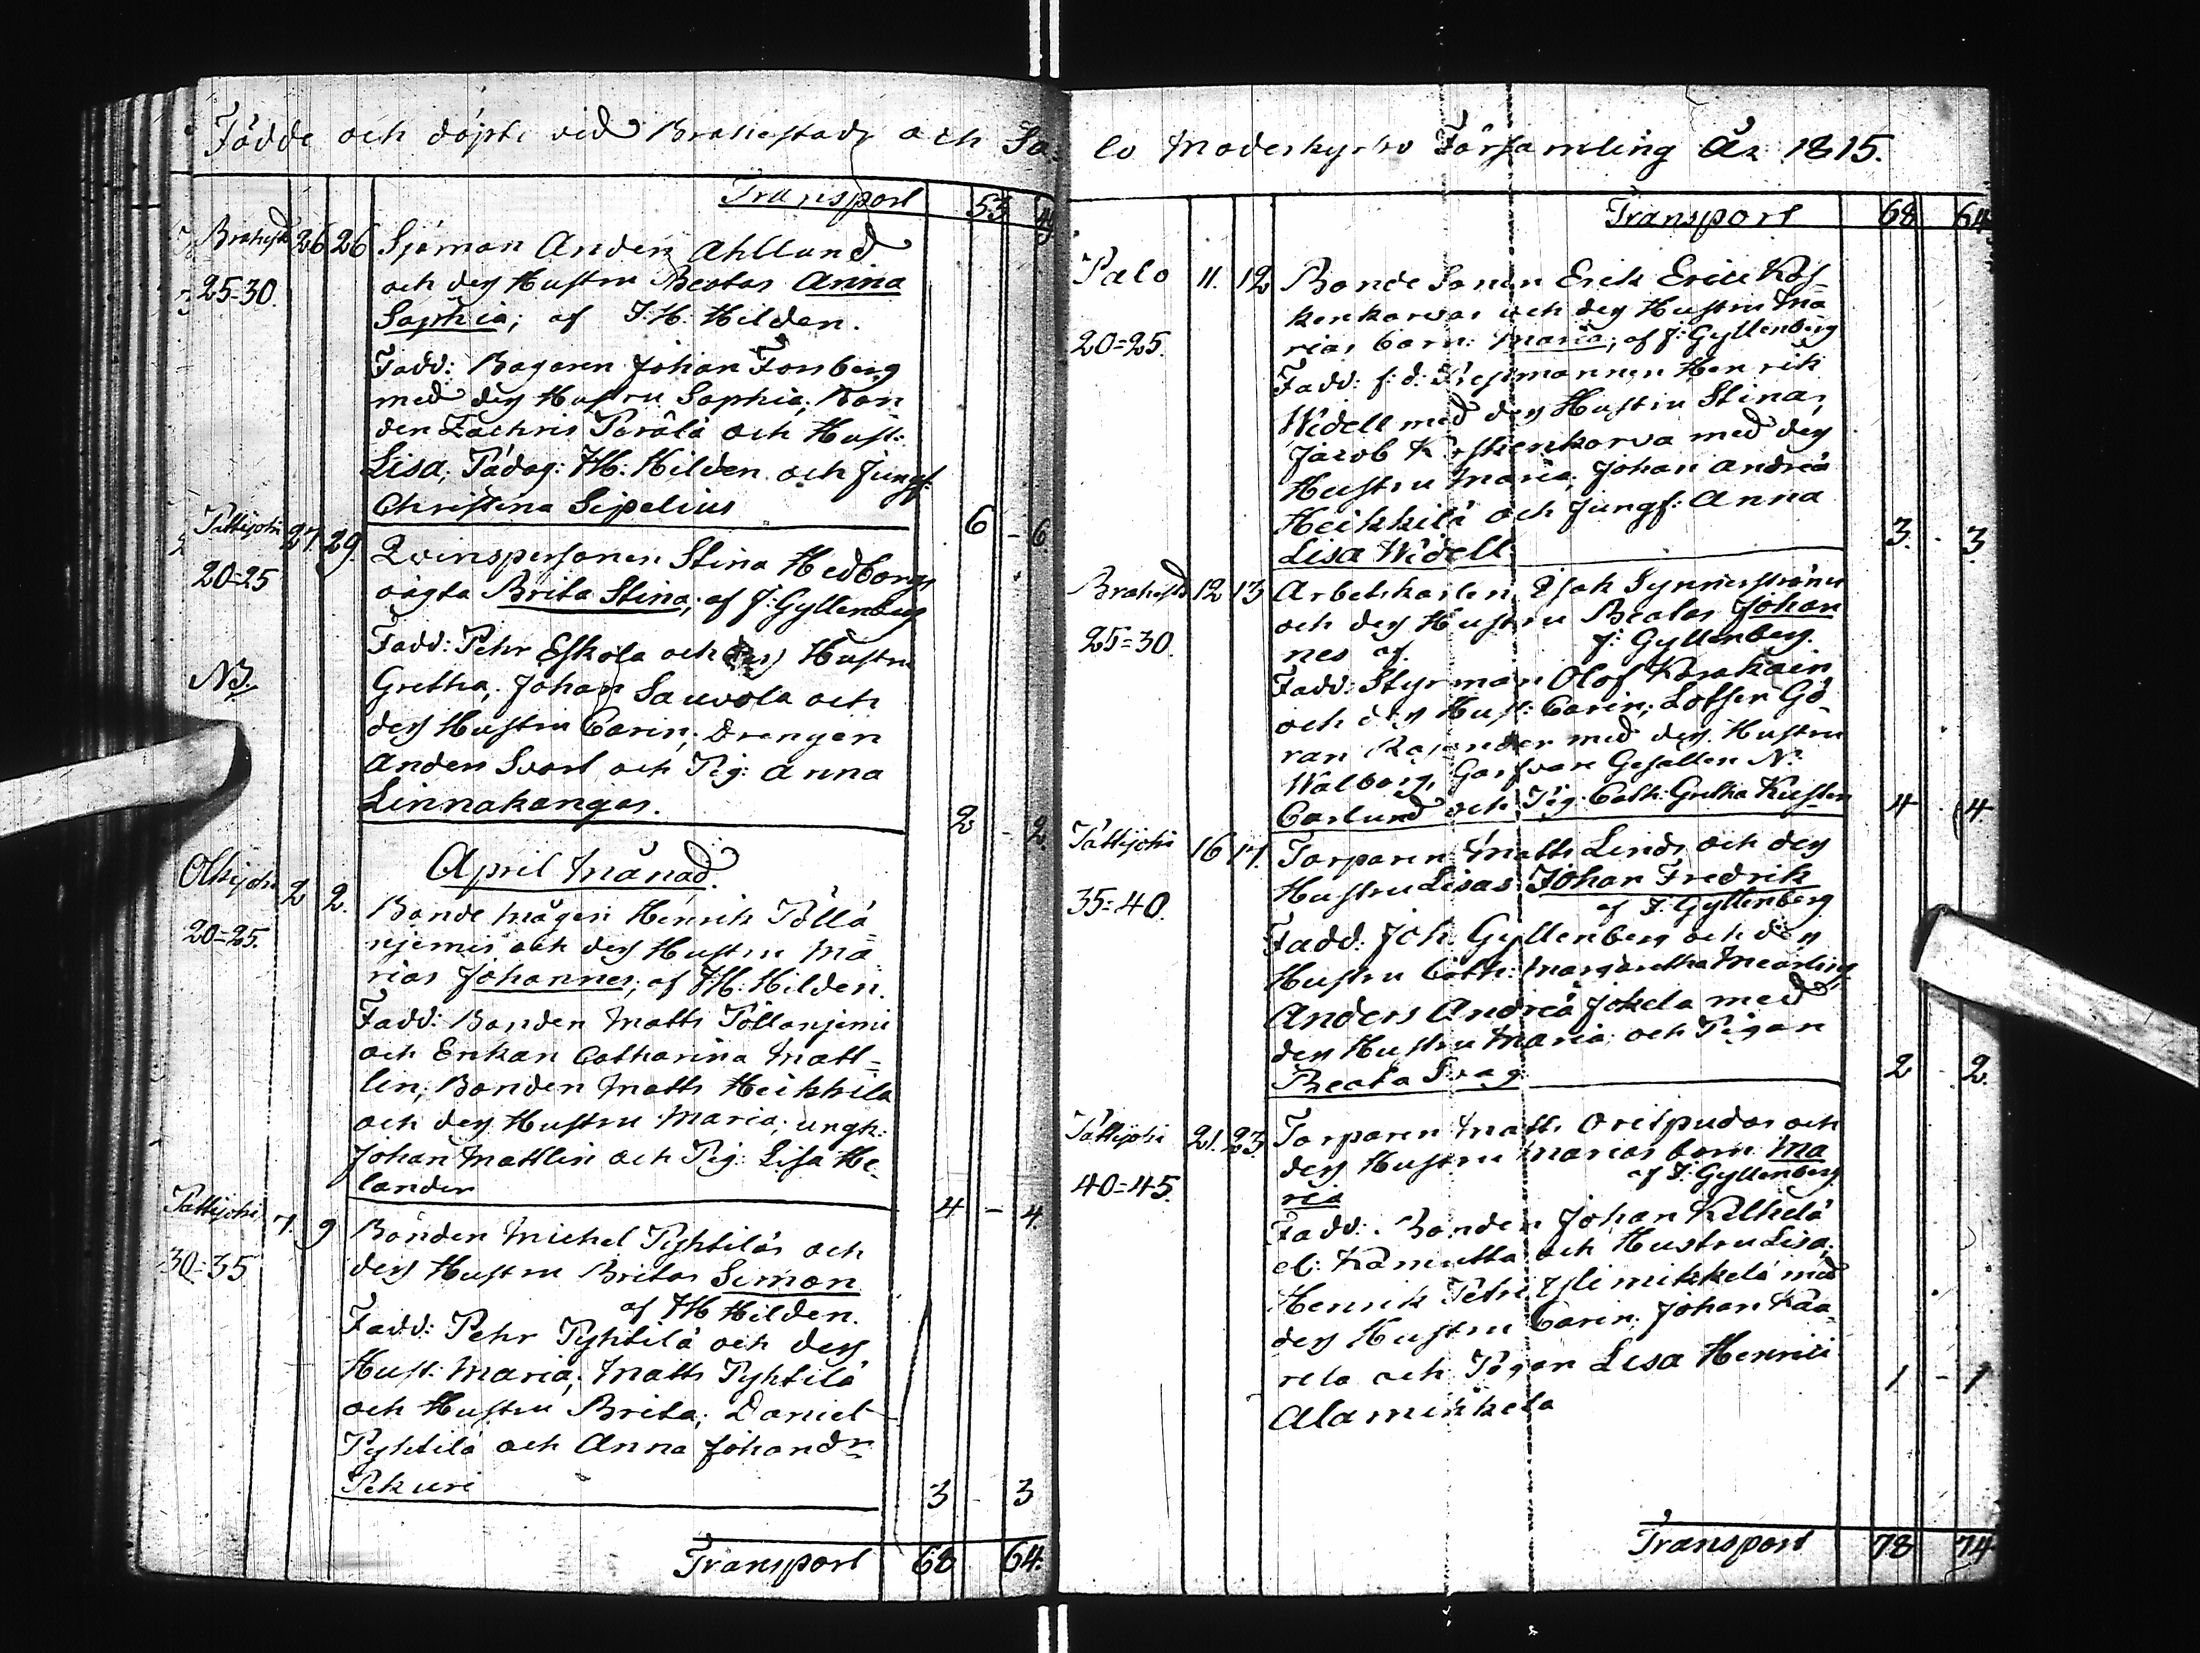 Födde och döpte vid Brahestads och Sa-
Transport 53 49
Brahest: 26 26 Sjöman Anders Ahllund
25=30. och dess Hustru Beatas Anna
Sophia; af J.H. Hilden.
Fadd: Bagaren Johan Forsberg
med dess Hustru Sophia; Bon
den Zachris Parålå och Hust:
Lisa; Pädag: J.H. Hilden och Jungf:
Christina Sipelius 6 - 6.
Pattijoki 27. 29. Qvinspersonen Stina Hedborgs
20=25 oägta Brita Stina; af J: Gyllenberg
Fadd: Pehr Eskola och dess Hustru
NB. Gretha; Johan Sauvola och
dess Hustru Carin; Drengen
Anders Svart och Pig: Anna
Linnakangas. 2 - 2
April Månad.
Olkijoki 2 2. Bonde Mågen Henrik Töllä=
20=25. njemis och dess Hustru Ma
rias Johannes; af J.H. Hilden.
Fadd: Bonden Matts Töllänjemi
och Enkan Catharina Matt=
lin; Bonden Matts Heikkilä
och dess Hustru Maria; ungk:
Johan Mattlin och Pig: Lisa He-
lander 4 - 4.
Pattijoki 7. 9 Bonden Michel Pyhtiläs och
30=35 dess Hustru Britas Simon
af J.H. Hilden.
Fadd: Pehr Pyhtilä och dess
Hust: Maria; Matts Pyhtilä
och Hustru Brita; Daniel
Pyhtilä och Anna Johansdr
Pekuri 3 - 3
Transport 68 64.
lo Moderkyrko Församling År 1815.
Transport 68 64
Palo 11. 12 Bonde Sonen Erik Ericss Kos=
kenkorvas och dess Hustru Ma
20=25. rias barn: Maria; af J: Gyllenberg
Fadd: f: d: Länsmannen Henrik
Widell med dess Hustru Stina;
Jacob Koskenkorva med dess
Hustru Maria; Johan Andreæ
Heikkilä och Jungf: Anna
Lisa Widell 3. - 3
Brahestd 12 13 Arbetskarlen Esak Synnerströms
och dess Hustru Beatas Johan
25=30. nes af J: Gyllenberg.
Fadd: Styrman Olof Korhoin
och dess Hust: Carin; Lotsen Gö-
ran Rajander med dess Hustru
Walborg, Garfvare Gesällen N:
Carlund och Pig: Cath: Gretha Kusten 4 - 4
Pattijoki 16 17. Torparen Matts Linds och dess
Hustru Lisas Johan Fredrik
35=40. af J: Gyllenberg
Fadd: Joh: Gyllenberg och dess
Hustru Cath: Margaretha Mearling
Anders Andreæ Jokela med
dess Hustru Maria; och Pigan
Beata Svag 2 - 2.
Pattijoki 21. 23. Torparen Matts Orispudas och
dess Hustru Marias barn Ma
40=45. ria af J: Gyllenberg
Fadd: Bonden Johan Kelhelä
el: Kämettä och Hustru Lisa;
Henrik Pehrs Ylimikkelä med
dess Hustru Carin; Johan Kaa
rela och Pigan Lisa Henrici
Alamikkela 1 - 1
Transport 78 74